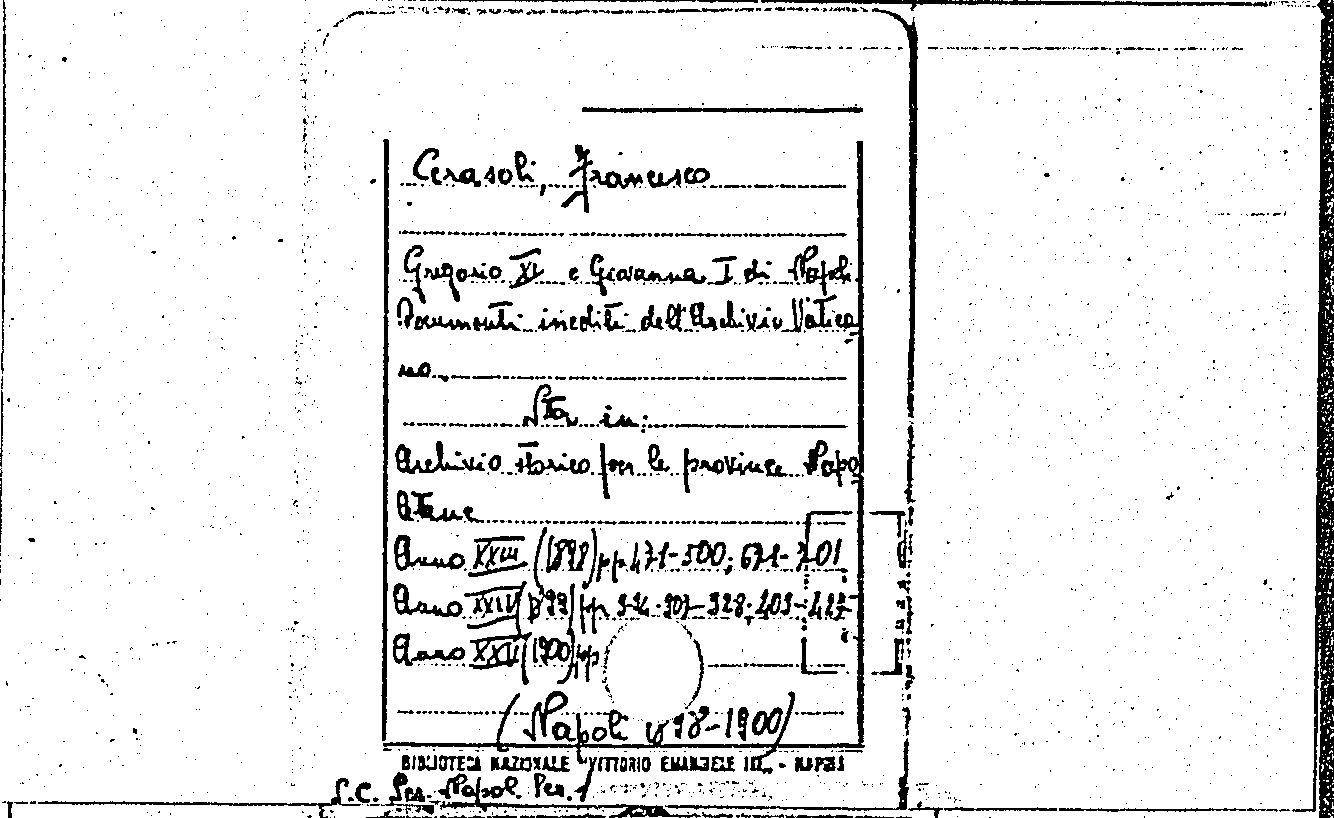 Cerasoli, Francesco
Gregorio XI e Giovanna I di Napoli.
Documenti inediti dell'Archivio Vatica
no.
Sta in:
Archivio storico per le province Napo
letane
Anno XXIII (1898) pp. 471-500; 671-701
Anno XXIV (1899) pp 3-24. 307-328; 403-427
Anno XXV (1900), pp
(Napoli 1898-1900)
BIBLIOTECA NAZIONALE VITTORIO EMANUELE III. - NAPOLI
S.C. Per. Napol. Per. 1